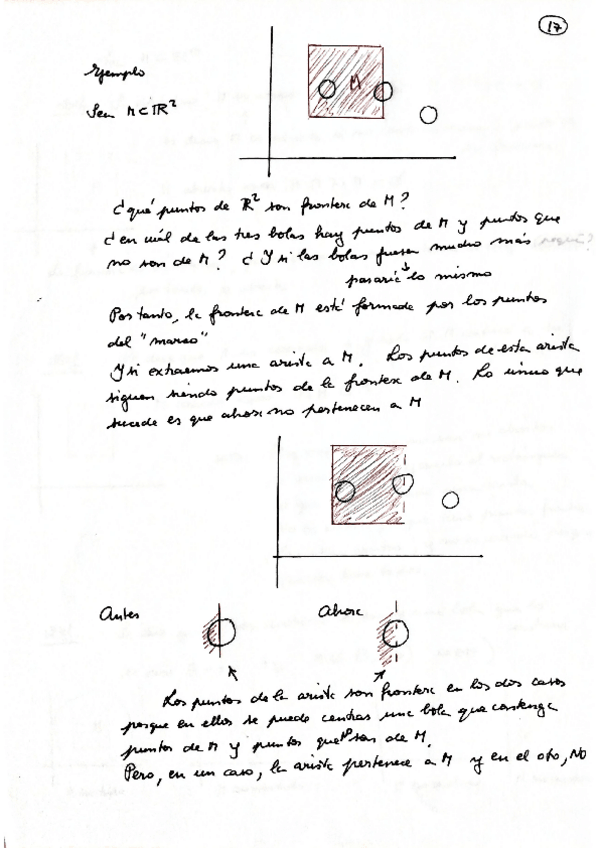 17
Ejemplo
M
Sea M⊂ℝ²
¿qué puntos de ℝ² son frontera de M?
¿en cuál de las tres bolas hay puntos de M y puntos que
no son de M? ¿Y si las bolas fuesen mucho más
pasaría lo mismo
Por tanto, la frontera de M está formada por los puntos
del "marco"
Y si extraemos una arista a M. Los puntos de esta arista
siguen siendo puntos de la frontera de M. Lo único que
sucede es que ahora no pertenecen a M
Antes
Ahora
Los puntos de la arista son frontera en los dos casos
porque en ellos se puede centrar una bola que contenga
puntos de M y puntos que no son de M.
Pero, en un caso, la arista pertenece a M y en el otro, NO